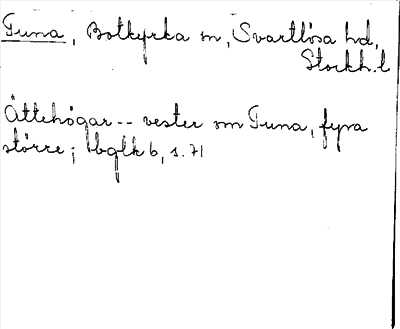 Tuna, Botkyrka sn, Svartlösa hd,
Stockh. l
Ättehögar -- vester om Tuna, fyra
större; Ibglk 6, s. 71